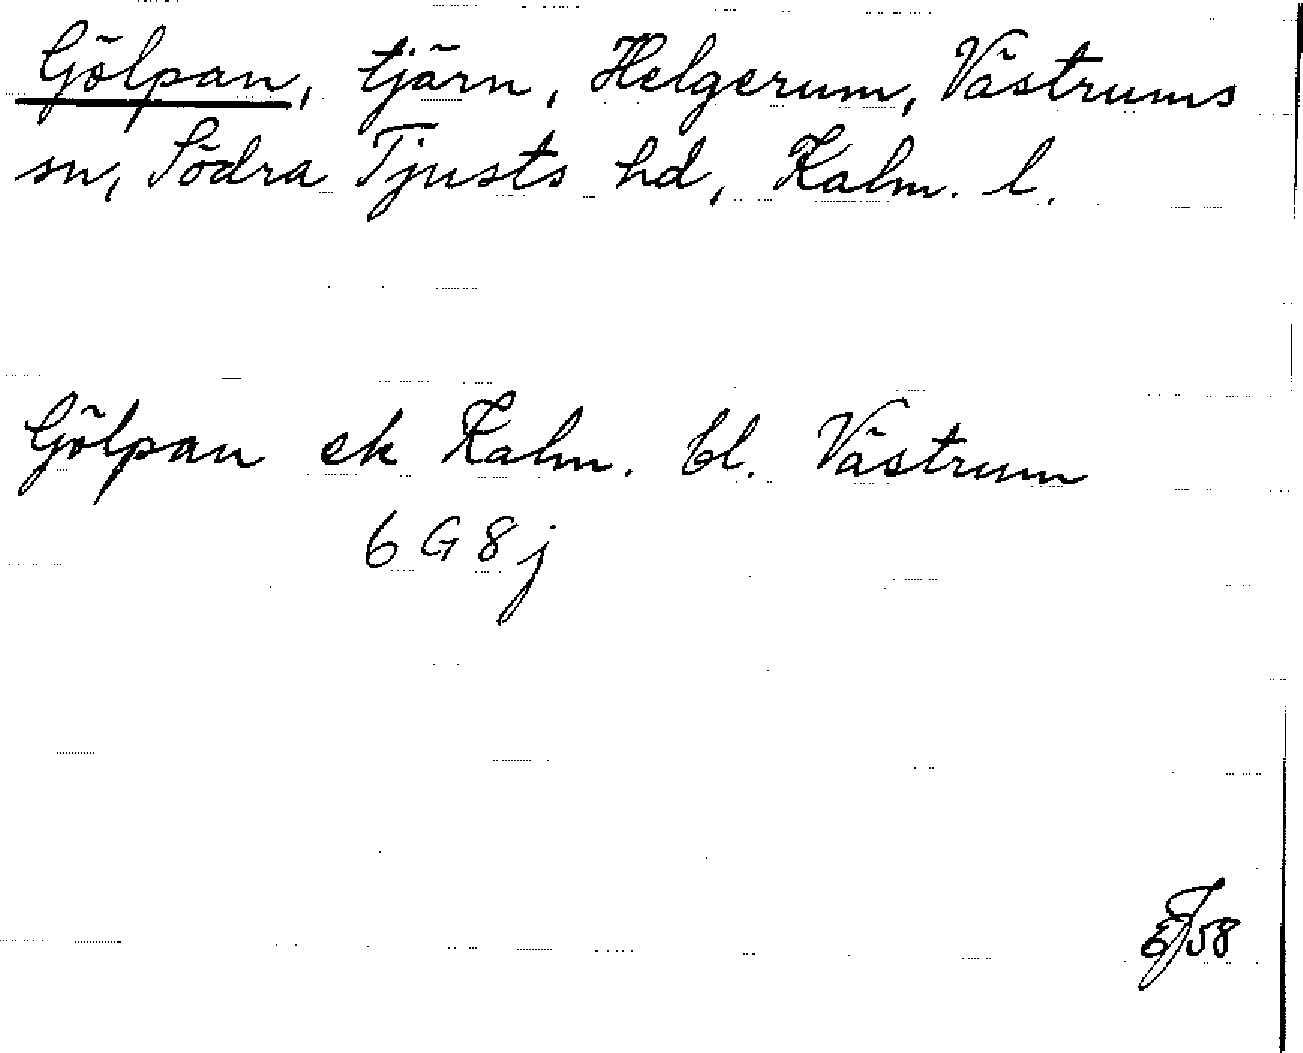 Gölpan, tjärn, Helgerum, Västrums
sn, Södra Tjusts hd, Kalm. l.
Gölpan ek Kalm. bl. Västrum
6 G 8 j